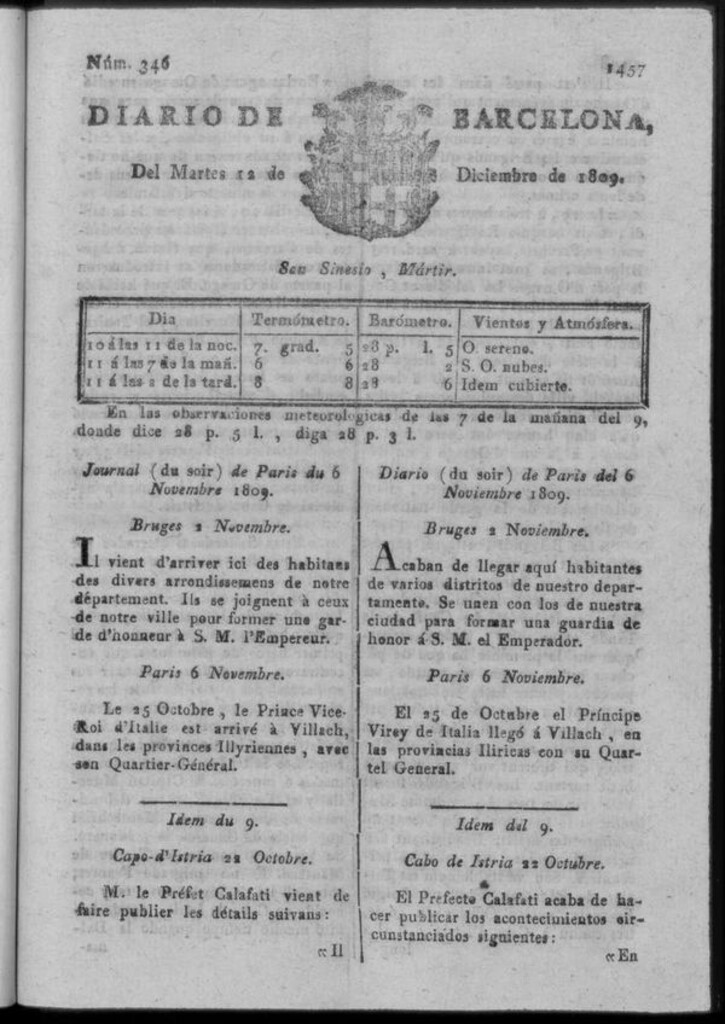 Núm. 346 1457
DIARIO DE BARCELONA,
Del Martes 12 de Diciembre de 1809.
San Sinesio , Mártir.
Dia Termómetro. Barómetro. Vientos y Atmósfera.
10 á las 11 de la noc. 7. grad. 5 28 p. l. 5 O. sereno.
11 á las 7 de la mañ. 6 6 28 2 S. O. nubes.
11 á las 2 de la tard. 8 8 28 6 Idem cubierto.
En las observaciones meteorologicas de las 7 de la mañana del 9,
donde dice 28 p. 5 l. , diga 28 p. 3 l.
Journal (du soir) de Paris du 6
Novembre 1809.
Bruges 2 Novembre.
Il vient d'arriver ici des habitans
des divers arrondissemens de notre
département. Ils se joignent à ceux
de notre ville pour former une gar-
de d'honneur à S. M. l'Empereur.
Paris 6 Novembre.
Le 25 Octobre , le Prince Vice-
Roi d'Italie est arrivé à Villach,
dans les provinces Illyriennes , avec
son Quartier-Général.
Idem du 9.
Capo-d'Istria 22 Octobre.
M. le Préfet Calafati vient de
faire publier les détails suivans :
« Il
Diario (du soir) de Paris del 6
Noviembre 1809.
Bruges 2 Noviembre.
Acaban de llegar aquí habitantes
de varios distritos de nuestro depar-
tamento. Se unen con los de nuestra
ciudad para formar una guardia de
honor á S. M. el Emperador.
Paris 6 Noviembre.
El 25 de Octubre el Príncipe
Virey de Italia llegó á Villach , en
las provincias Iliricas con su Quar-
tel General.
Idem del 9.
Cabo de Istria 22 Octubre.
El Prefecto Calafati acaba de ha-
cer publicar los acontecimientos cir-
cunstanciados siguientes :
« En